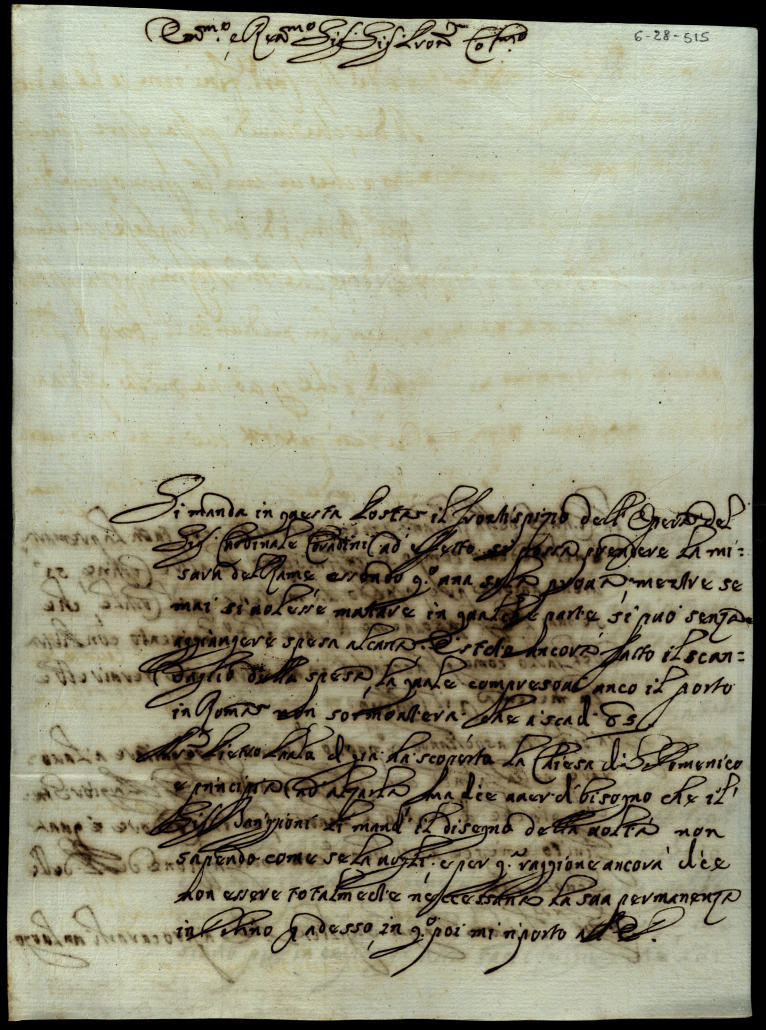 Em.mo e Rev.mo Sig.r Sig.r Pron Col.mo
6-28-515
Si manda in questa Posta il frontispizio dell'Opera del
Sig.r Cardinale Coradini ad effetto si possa prendere la mi=
sura del Rame essendo q.o una sola prova mentre se
mai si volesse mutare in qualche parte si può senza
aggiungere spesa alcuna ancora fatto il scan=
daglio della spesa, la quale compresoci anco il porto
in Roma non sormonterà che a scudi 65.
Pietro di già ha scoperto la Chiesa di S. Domenico
e principia ad alzarla ma dice aver di bisogno che il
Sig.r Sangrioni li mandi il disegno della volta non
sapendo come se la vogli e per q.a raggione ancora dice
non essere totalmente necessaria la sua permanenza
in adesso, in q.o poi mi riporto a